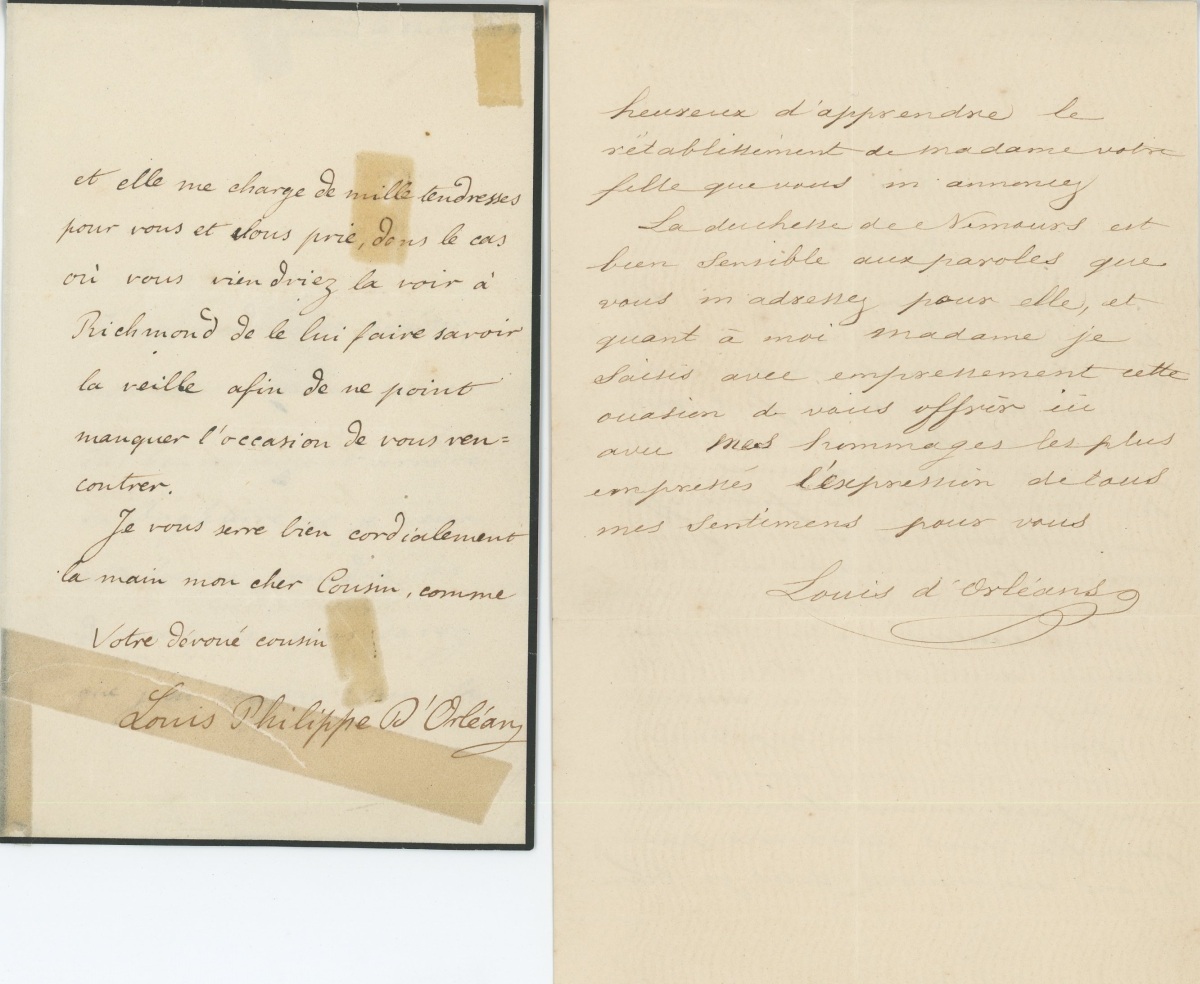 et elle me charge de mille tendresses
pour vous et vous prie, dans le cas
où vous viendriez la voir à
Richmond de le lui faire savoir
la veille afin de ne point
manquer l'occasion de vous ren=
contrer.
Je vous serre bien cordialement
la main mon cher Cousin, comme
Votre dévoué cousin
Louis Philippe D'Orléans
heureux d'apprendre le
rétablissement de madame votre
fille que vous m'annoncez
La duchesse de Nemours est
bien sensible aux paroles que
vous m'adressez pour elle, et
quant à moi madame je
saisis avec empressement cette
occasion de vous offrir ici
avec mes hommages les plus
empressés l'expression de tous
mes sentimens pour vous
Louis d'Orléans